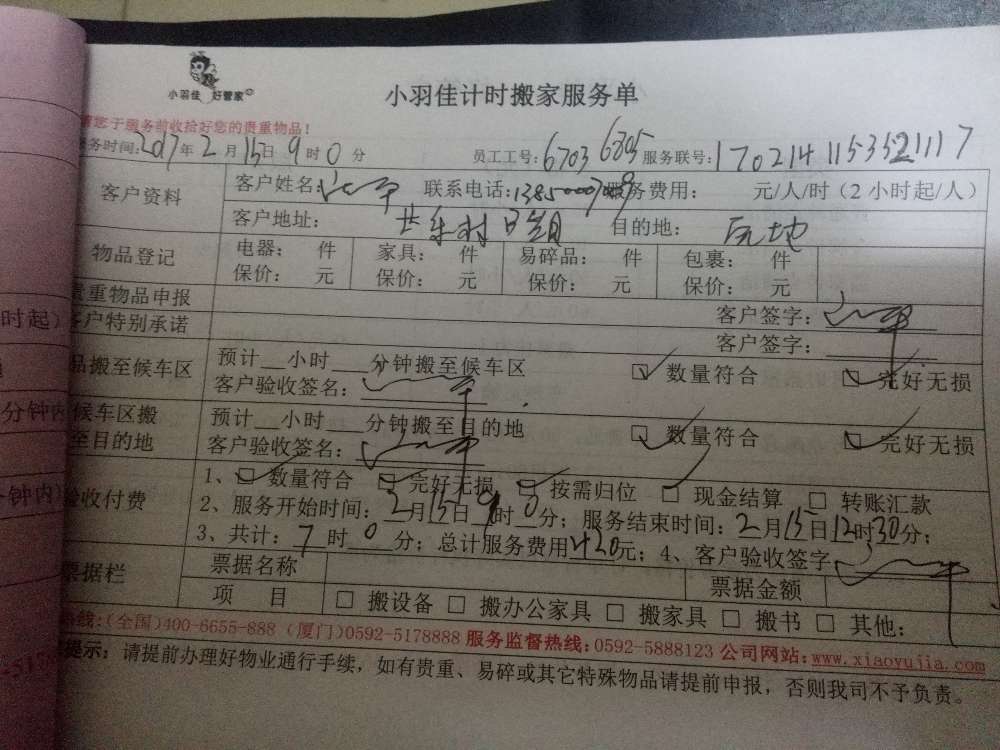 小羽佳 好管家
小羽佳计时搬家服务单
请您于服务前收拾好您的贵重物品！
服务时间：2017年2月15日9时0分 员工工号：6703 6805 服务联号：1702141153521117
客户资料 客户姓名： 联系电话： 服务费用： 元/人/时（2小时起/人）
客户地址： 目的地：
物品登记 电器： 件 家具： 件 易碎品： 件 包裹： 件
保价： 元 保价： 元 保价： 元 保价： 元
贵重物品申报 客户签字：
客户特别承诺 客户签字：
时起）
品搬至候车区 预计__小时___分钟搬至候车区 ☑ 数量符合 ☑ 完好无损
客户验收签名：
分钟内 候车区搬 预计__小时___分钟搬至目的地 ☑ 数量符合 ☑ 完好无损
至目的地 客户验收签名：
验收付费 1、☑ 数量符合 ☑ 完好无损 ☑ 按需归位 ☑ 现金结算 □ 转账汇款
钟内）
2、服务开始时间：2月15日9时0分；服务结束时间：2月15日12时30分；
3、共计：7时0分；总计服务费用420元；4、客户验收签字
票据栏 票据名称 票据金额
项 目 □ 搬设备 □ 搬办公家具 □ 搬家具 □ 搬书 □ 其他：
热线：(全国)400-6655-888 (厦门)0592-5178888 服务监督热线：0592-5888123 公司网站：www.xiaoyujia.com
提示：请提前办理好物业通行手续，如有贵重、易碎或其它特殊物品请提前申报，否则我司不予负责。